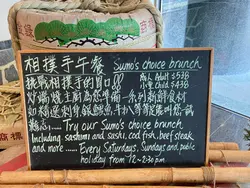 相撲手午餐 Sumo's choice brunch
挑戰相撲手的胃口!!! 成人 Adult $538
小童 Child $438
爐端燒主廚為您準備一系列新鮮食材
如精選刺身、銀鱈魚、牛扒等
Try our Sumo's choice brunch
Including sashimi and sushi, cod fish, beef steak
and more ...... Every Saturdays, Sundays and public
holiday from 12-2:30 pm.